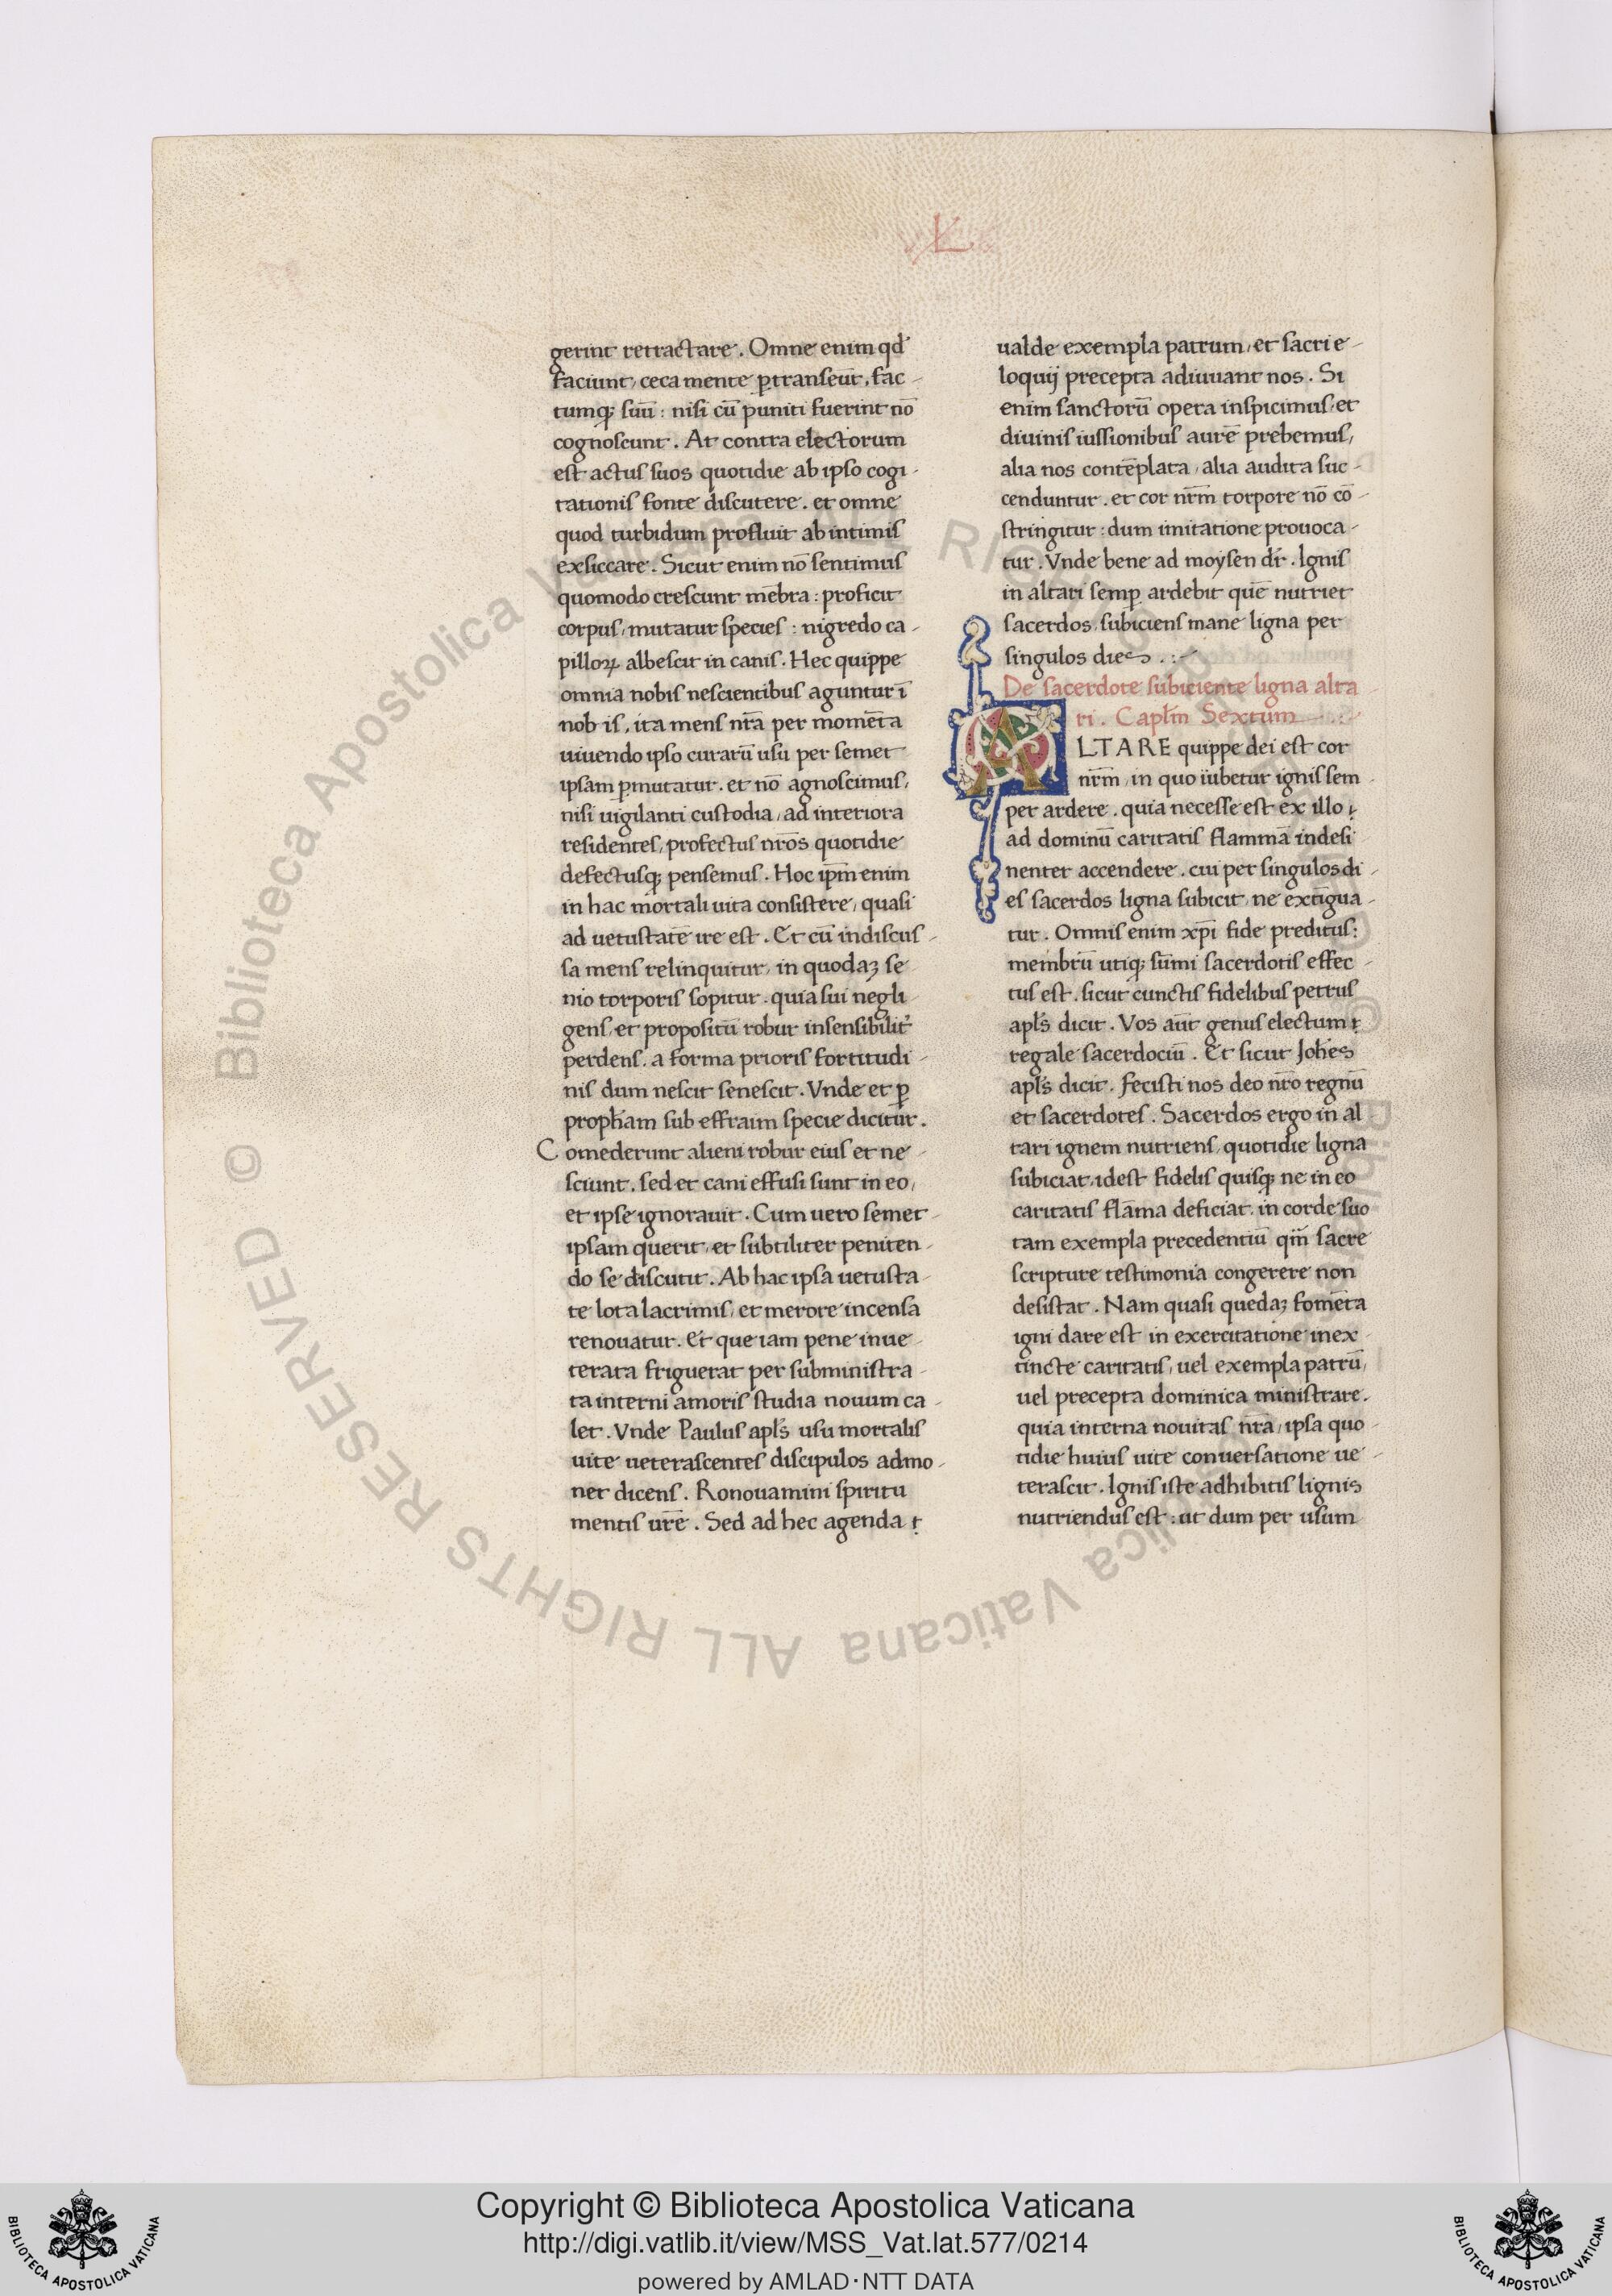 L
gerint retractare. Omne enim qđ
faciunt, ceca mente ꝑtranseūt, fac-
tumqꝫ suū: nisi cū puniti fuerint nō
cognoscunt. At contra electorum
est actus suos quotidie ab ipso cogi-
tationis fonte discutere. et omne
quod turbidum profluit ab intimis
exsiccare. Sicut enim nō sentimus
quomodo crescunt mēbra: proficit
corpus, mutatur species: nigredo ca-
pilloꝝ albescit in canis. Hec quippe
omnia nobis nescientibus aguntur ī
nobis, ita mens nr̄a per momēta
uiuendo ipso curarū usu per semet
ipsam ꝑmutatur. et nō agnoscimus,
nisi uigilanti custodia, ad interiora
residentes, profectus nr̄os quotidie
defectusqꝫ pensemus. Hoc ip̄m enim
in hac mortali uita consistere, quasi
ad uetustatē ire est. Et cū indiscus-
sa mens relinquitur, in quodaꝫ se-
nio torporis sopitur. quia sui negli-
gens, et propositū robur insensibilit̉
perdens. a forma prioris fortitudi-
nis dum nescit senescit. Vnde et ꝑ
proph̄am sub effraim specie dicitur.
Comederunt alieni robur eius et ne-
sciunt. sed et cani effusi sunt in eo,
et ipse ignorauit. Cum uero semet-
ipsam querit, et subtiliter peniten-
do se discutit. Ab hac ipsa uetusta-
te lota lacrimis, et merore incensa
renouatur. Et que iam pene inue-
terata friguerat per subministra-
ta interni amoris studia nouum ca-
let. Vnde Paulus apl̄s usu mortalis
uite ueterascentes discipulos admo-
net dicens. Ronouamini spiritu
mentis ur̄e. Sed ad hec agenda ꞇ
ualde exempla patrum, et sacri e-
loquij precepta adiuuant nos. Si
enim sanctorū opera inspicimus, et
diuinis iussionibus aurē prebemus,
alia nos contēplata, alia audita suc-
cenduntur. et cor nr̄m torpore nō cō-
stringitur: dum imitatione prouoca-
tur. Vnde bene ad moysen dr̄. Ignis
in altari semꝑ ardebit quē nutriet
sacerdos, subiciens mane ligna per
singulos dies.:-
De sacerdote subiciente ligna alta-
ri. Capl̄m Sextum
ALTARE quippe dei est cor
nr̄m, in quo iubetur ignis sem-
per ardere. quia necesse est ex illo ꞇ
ad dominū caritatis flammā indesi-
nenter accendere. cui per singulos di-
es sacerdos ligna subicit, ne extīgua-
tur. Omnis enim xp̄i fide preditus:
membrū utiqꝫ sūmi sacerdotis effec-
tus est. sicut cunctis fidelibus petrus
apl̄s dicit. Vos aūt genus electum ꞇ
regale sacerdociū. Et sicut Joh̄es
apl̄s dicit. Fecisti nos deo nr̄o regnū
et sacerdotes. Sacerdos ergo in al
tari ignem nutriens, quotidie ligna
subiciat, idest fidelis quisqꝫ ne in eo
caritatis flāma deficiat, in corde suo
tam exempla precedentiū qm̄ sacre
scripture testimonia congerere non
desistat. Nam quasi quedaꝫ fomēta
igni dare est in exercitatione inex-
tincte caritatis, uel exempla patrū,
uel precepta dominica ministrare.
quia interna nouitas nr̄a, ipsa quo-
tidie huius uite conuersatione ue-
terascit. Ignis iste adhibitis lignis
nutriendus est: ut dum per usum
© Biblioteca Apostolica Vaticana ALL RIGHTS RESERVED
Copyright © Biblioteca Apostolica Vaticana
http://digi.vatlib.it/view/MSS_Vat.lat.577/0214
powered by AMLAD·NTT DATA
BIBLIOTECA APOSTOLICA VATICANA
BIBLIOTECA APOSTOLICA VATICANA